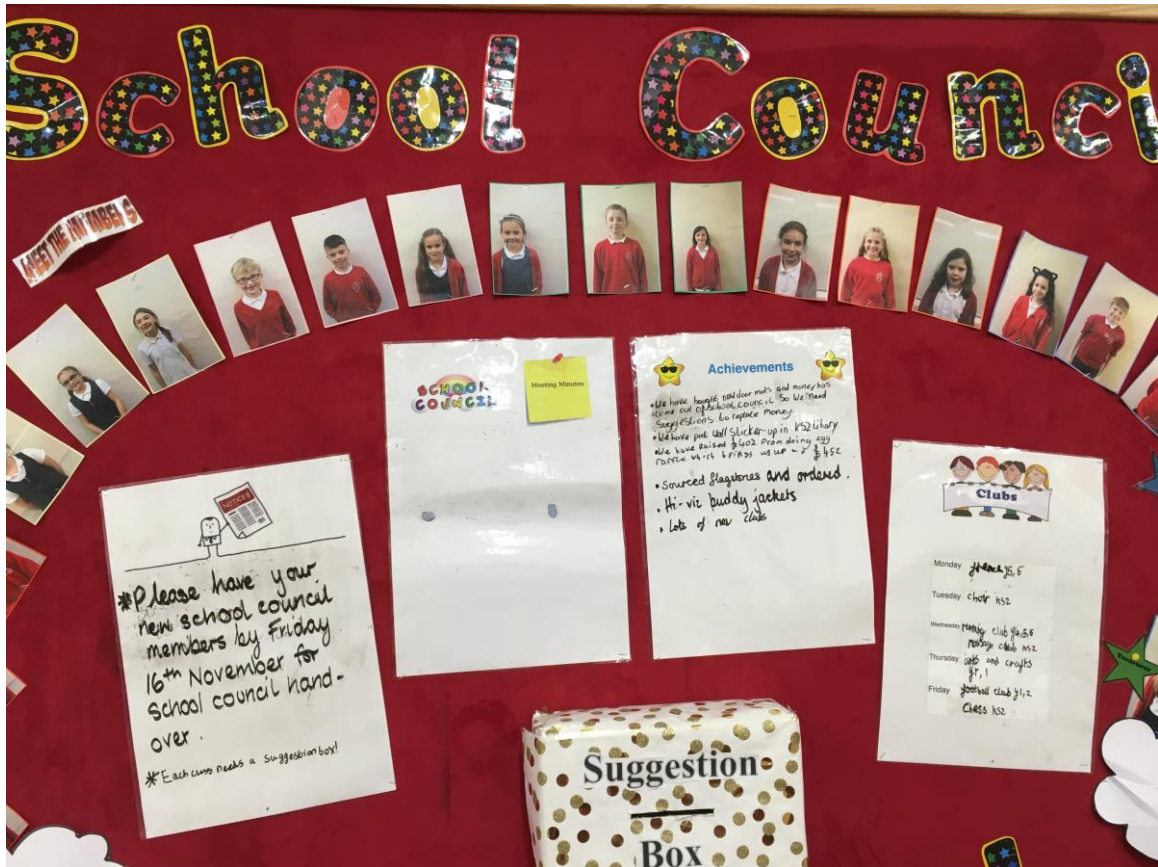 School Counci
MEET THE
NOTICES
*Please have your
new school council
members by Friday
16th November for
School council hand-
over.
*Each class needs a suggestion box!
SCHOOL
COUNCIL
Meeting Minutes
Achievements
• We have bought new door mats and money has
come out of school council So We need
Suggestions to replace money
• We have put Wall Sticker up in KS2 Libary
We have Raised £402 From doing egg
raffle which brings us up £452
• Sourced flagstones and ordered.
• Hi-viz buddy jackets
• Lots of new clubs
Clubs
Monday french y5,6
Tuesday choir KS2
Wednesday club y4,5,6
club KS2
Thursday and crafts
yr,1
Friday football club y1,2
Chess KS2
Suggestion
Box